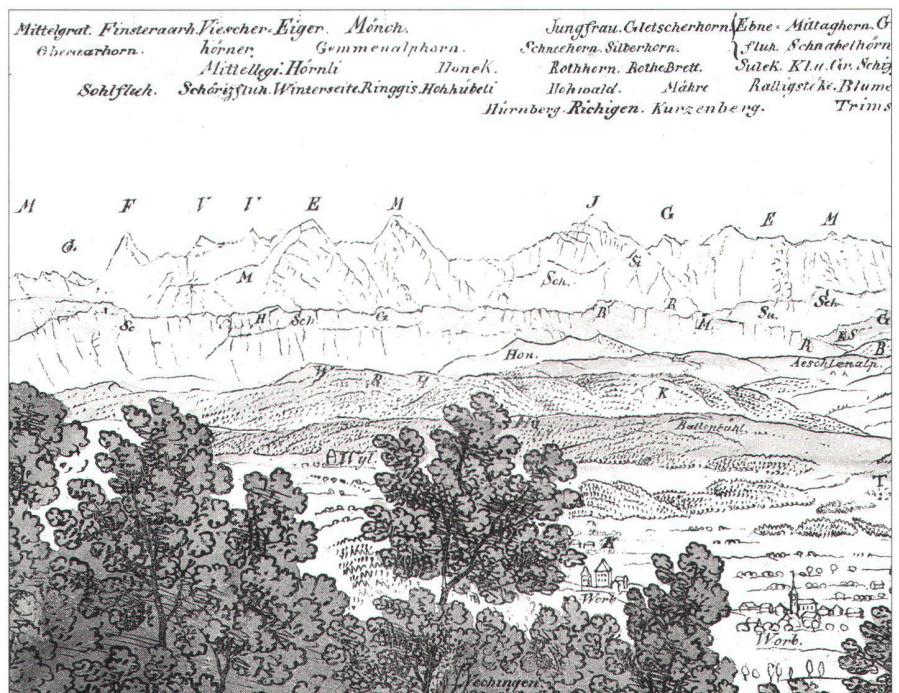 Mittelgrat. Finsteraarh. Viescher= Eiger. Mönch. Jungfrau. Gletscherhorn. Ebne= Mittaghorn. G
Oberaarhorn. hörner. Gemmenalphorn. Schneehorn. Silberhorn. fluh. Schnabelhörn
Mittellegi. Hörnli Honek. Rothhorn. Rothe Brett. Sulek. Kl. u. Gr. Schif
Sohlfluh. Schörizfluh. Winterseite. Ringgis. Hohhubeli Hohwald. Mähre Ralligstöke. Blume
Hürnberg. Richigen. Kurzenberg. Trims
M F V V E M J G E M
O. M Sch. Si
Sc H Sch G R R M. Su. Sch G
Hon. R R S B
Aeschlenalp.
W R H K
Hü Ballenbühl.
Wyl. T
Worb
Worb.
Vechingen.